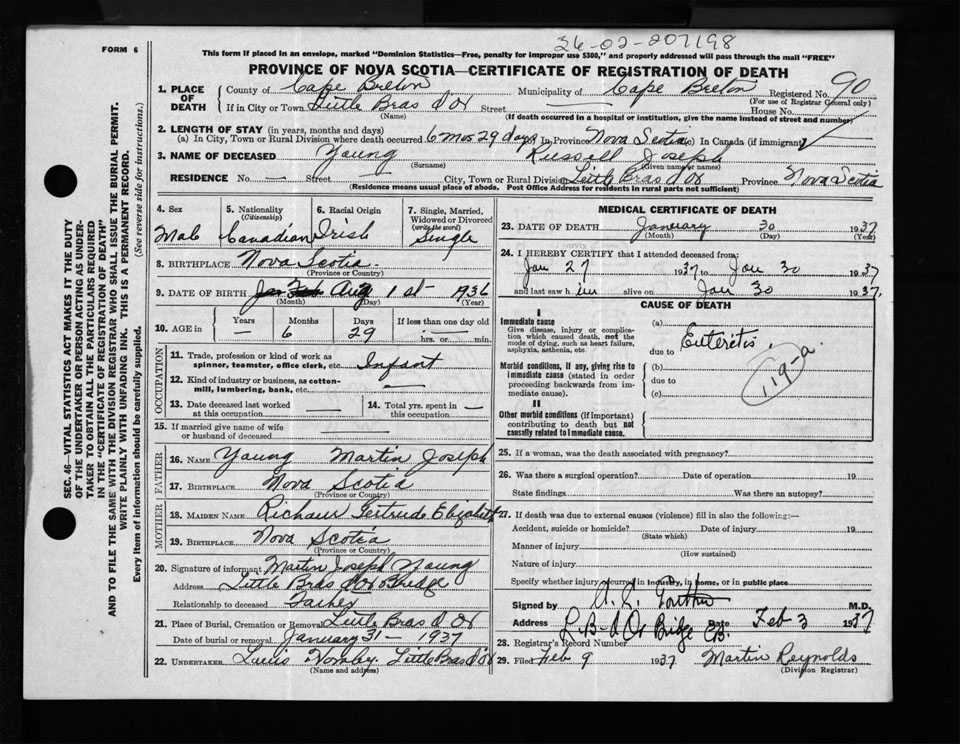 FORM 6
36-02-207198
This form if placed in an envelope, marked "Dominion Statistics—Free, penalty for improper use $300," and properly addressed will pass through the mail "FREE"
PROVINCE OF NOVA SCOTIA—CERTIFICATE OF REGISTRATION OF DEATH
1. PLACE OF DEATH County of Cape Breton Municipality of Cape Breton Registered No. 90
(For use of Registrar General only)
If in City or Town Little Bras d'Or Street — House No.
(Name) (If death occurred in a hospital or institution, give the name instead of street and number)
2. LENGTH OF STAY (in years, months and days)
(a) In City, Town or Rural Division where death occurred 6 mos 29 days (b) In Province Nova Scotia (c) In Canada (if immigrant)
3. NAME OF DECEASED Young Russell Joseph
(Surname) (Given name or names)
RESIDENCE No. — Street — City, Town or Rural Division Little Bras d'Or Province Nova Scotia
(Residence means usual place of abode. Post Office Address for residents in rural parts not sufficient)
4. Sex Male
5. Nationality (Citizenship) Canadian
6. Racial Origin Irish
7. Single, Married, Widowed or Divorced (write the word) Single
8. BIRTHPLACE Nova Scotia
(Province or Country)
9. DATE OF BIRTH Aug 1st 1936
(Month) (Day) (Year)
10. AGE in Years — Months 6 Days 29 If less than one day old — hrs. or — min.
OCCUPATION
11. Trade, profession or kind of work as spinner, teamster, office clerk, etc. Infant
12. Kind of industry or business, as cotton-mill, lumbering, bank, etc. —
13. Date deceased last worked at this occupation —
14. Total yrs. spent in this occupation —
15. If married give name of wife or husband of deceased —
FATHER
16. NAME Young Martin Joseph
17. BIRTHPLACE Nova Scotia
(Province or Country)
MOTHER
18. MAIDEN NAME Gertrude Elizabeth
19. BIRTHPLACE Nova Scotia
(Province or Country)
20. Signature of informant Martin Joseph Young
Address Little Bras d'Or Bridge
Relationship to deceased Father
21. Place of Burial, Cremation or Removal Little Bras d'Or
Date of burial or removal January 31— 1937
22. UNDERTAKER Little Bras d'Or
(Name and address)
MEDICAL CERTIFICATE OF DEATH
23. DATE OF DEATH January 30 1937
(Month) (Day) (Year)
24. I HEREBY CERTIFY that I attended deceased from:
Jan 27 1937 to Jan 30 1937
and last saw him alive on Jan 30 1937.
CAUSE OF DEATH
I
Immediate cause
Give disease, injury or complication which caused death, not the mode of dying, such as heart failure, asphyxia, asthenia, etc.
(a) Enteritis
due to
119-a
Morbid conditions, if any, giving rise to immediate cause (stated in order proceeding backwards from immediate cause).
(b)
due to
(c)
II
Other morbid conditions (if important) contributing to death but not causally related to immediate cause.
25. If a woman, was the death associated with pregnancy?
26. Was there a surgical operation? Date of operation 19
State findings Was there an autopsy?
27. If death was due to external causes (violence) fill in also the following:—
Accident, suicide or homicide? Date of injury 19
(State which)
Manner of injury
(How sustained)
Nature of injury
Specify whether injury occurred in industry, in home, or in public place
Signed by M.D.
Address L. B. d'Or Bridge C.B. Date Feb 3 1937
28. Registrar's Record Number
29. Filed Feb 9 1937 Martin Reynolds
(Division Registrar)
SEC. 46—VITAL STATISTICS ACT MAKES IT THE DUTY
OF THE UNDERTAKER OR PERSON ACTING AS UNDER-
TAKER TO OBTAIN ALL THE PARTICULARS REQUIRED
IN THE "CERTIFICATE OF REGISTRATION OF DEATH"
AND TO FILE THE SAME WITH THE DIVISION REGISTRAR WHO SHALL ISSUE THE BURIAL PERMIT.
WRITE PLAINLY WITH UNFADING INK. THIS IS A PERMANENT RECORD.
Every item of information should be carefully supplied. (See reverse side for instructions.)